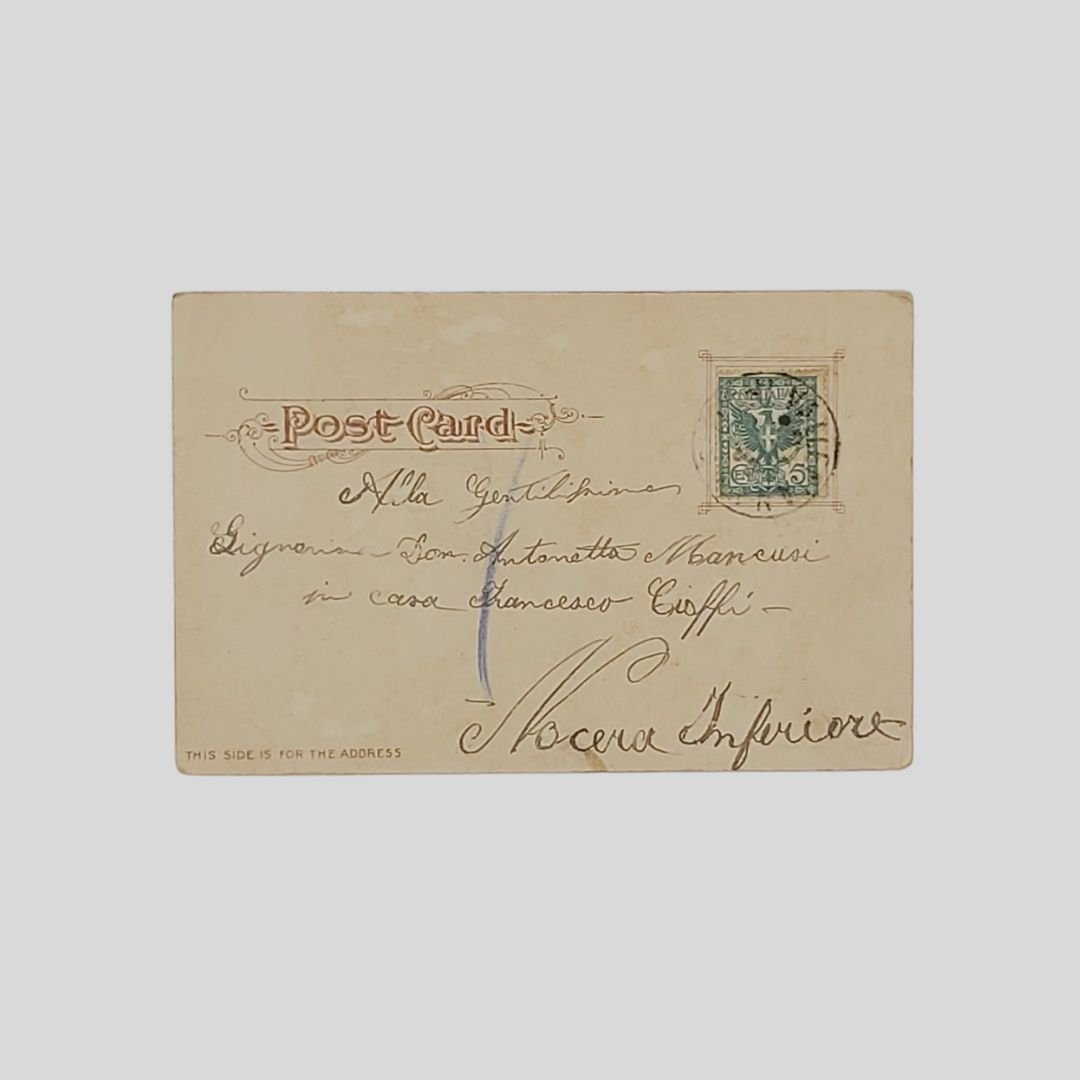 Post Card
POSTE ITALIANE
CENTESIMI 5
Alla Gentilissima
Signorina Don. Antonetta Mancusi
in casa Francesco Cioffi –
Nocera Inferiore
THIS SIDE IS FOR THE ADDRESS